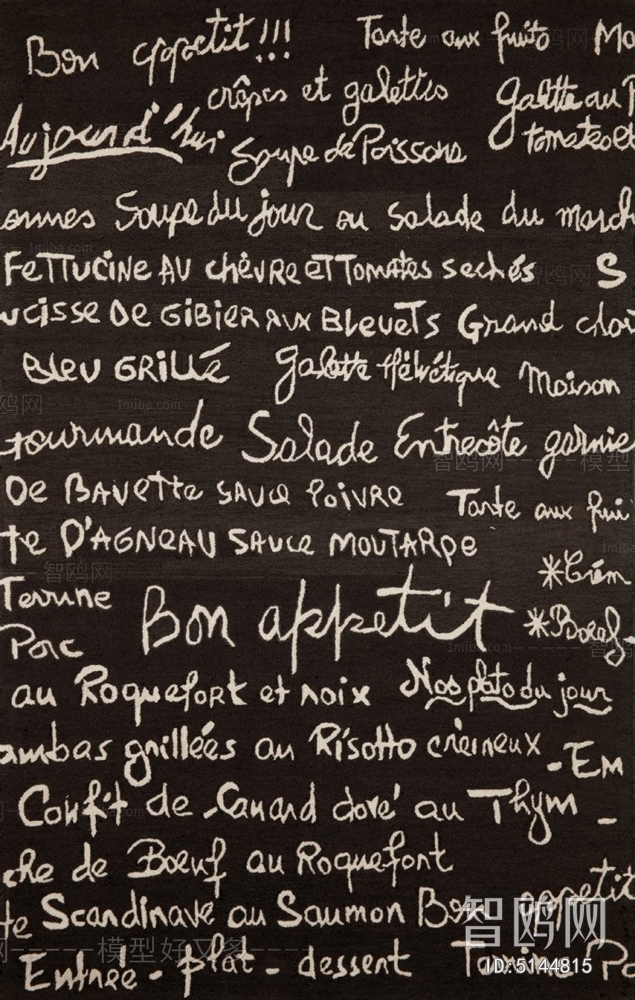 Bon appetit!!! Tarte aux fruits Mo
crêpes et galettes Galette au
Aujourd'hui Soupe de Poissons tomate
onnes Soupe du jour ou Salade du march
FETTUCINE AU chèVRE ET TOMATES SECHÉS S
UCISSE DE GIBIER AUX BLEUETS Grand choi
BLEU GRILLÉ Galette Helvétique Maison
gourmande Salade Entrecôte garnie
DE BAVETTE SAUCE POIVRE Tarte aux frui
te D'AGNEAU SAUCE MOUTARDE
*Crém
Terrine Bon appetit *Boeuf
Porc
au Roquefort et noix Nos plats du jour
ambas grillées au Risotto crémeux -Em
Confit de Canard doré au Thym -
che de Bœuf au Roquefort
te Scandinave au Saumon Bon appetit
Entrée - plat - dessert Terrine Po
智鸥网
ID:5144815